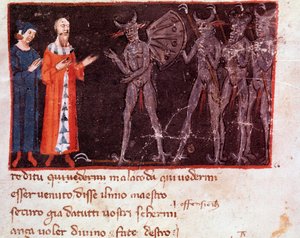 reditu qui vedermi malacoda qui vedermi
esser venuto disse ilmio maestro
securo gia datutti vostri schermi
anza voler divino e fato destro